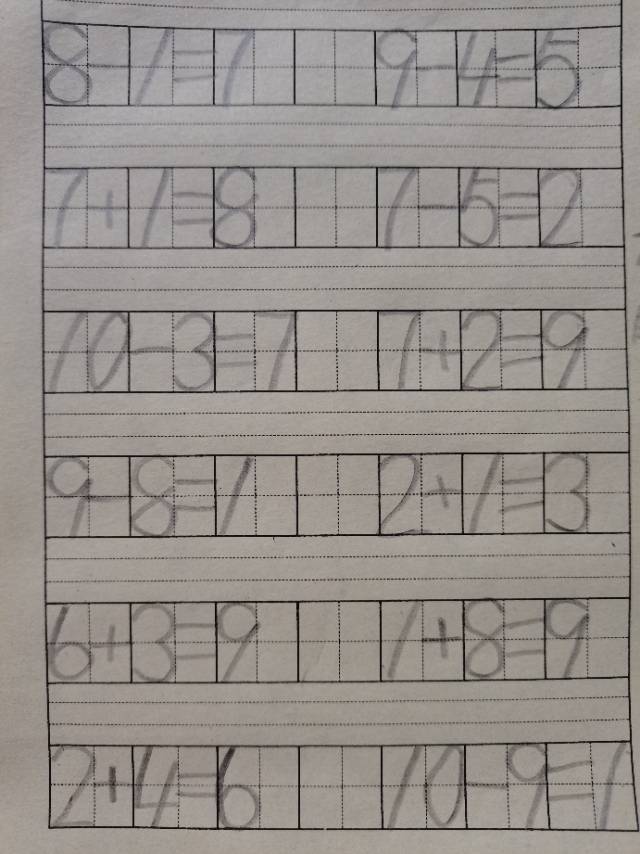 8-1=7 9-4=5
7+1=8 7-5=2
10-3=7 7+2=9
9-8=1 2+1=3
6+3=9 1+8=9
2+4=6 10-9=1